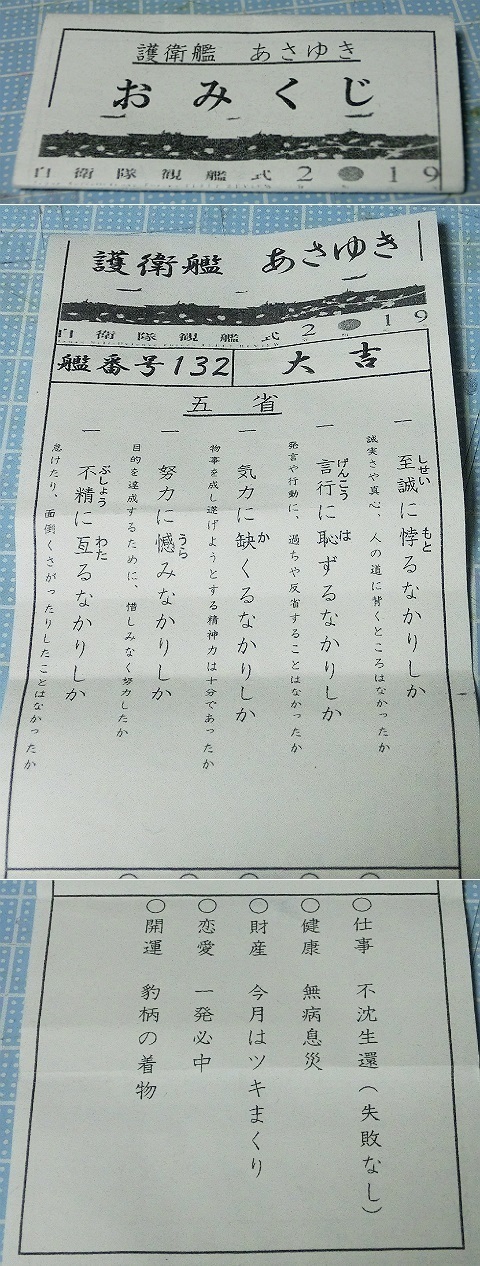 護衛艦 あさゆき
おみくじ
自衛隊観艦式2019
護衛艦 あさゆき
自衛隊観艦式2019
艦番号132
大吉
五省
一 至誠に悖るなかりしか
しせい もと
誠実さや真心、人の道に背くところはなかったか
一 言行に恥ずるなかりしか
げんこう は
発言や行動に、過ちや反省することはなかったか
一 気力に缺くるなかりしか
か
物事を成し遂げようとする精神力は十分であったか
一 努力に憾みなかりしか
うら
目的を達成するために、惜しみなく努力したか
一 不精に亙るなかりしか
ぶしょう わた
怠けたり、面倒くさがったりしたことはなかったか
○仕事 不沈生還(失敗なし)
○健康 無病息災
○財産 今月はツキまくり
○恋愛 一発必中
○開運 豹柄の着物